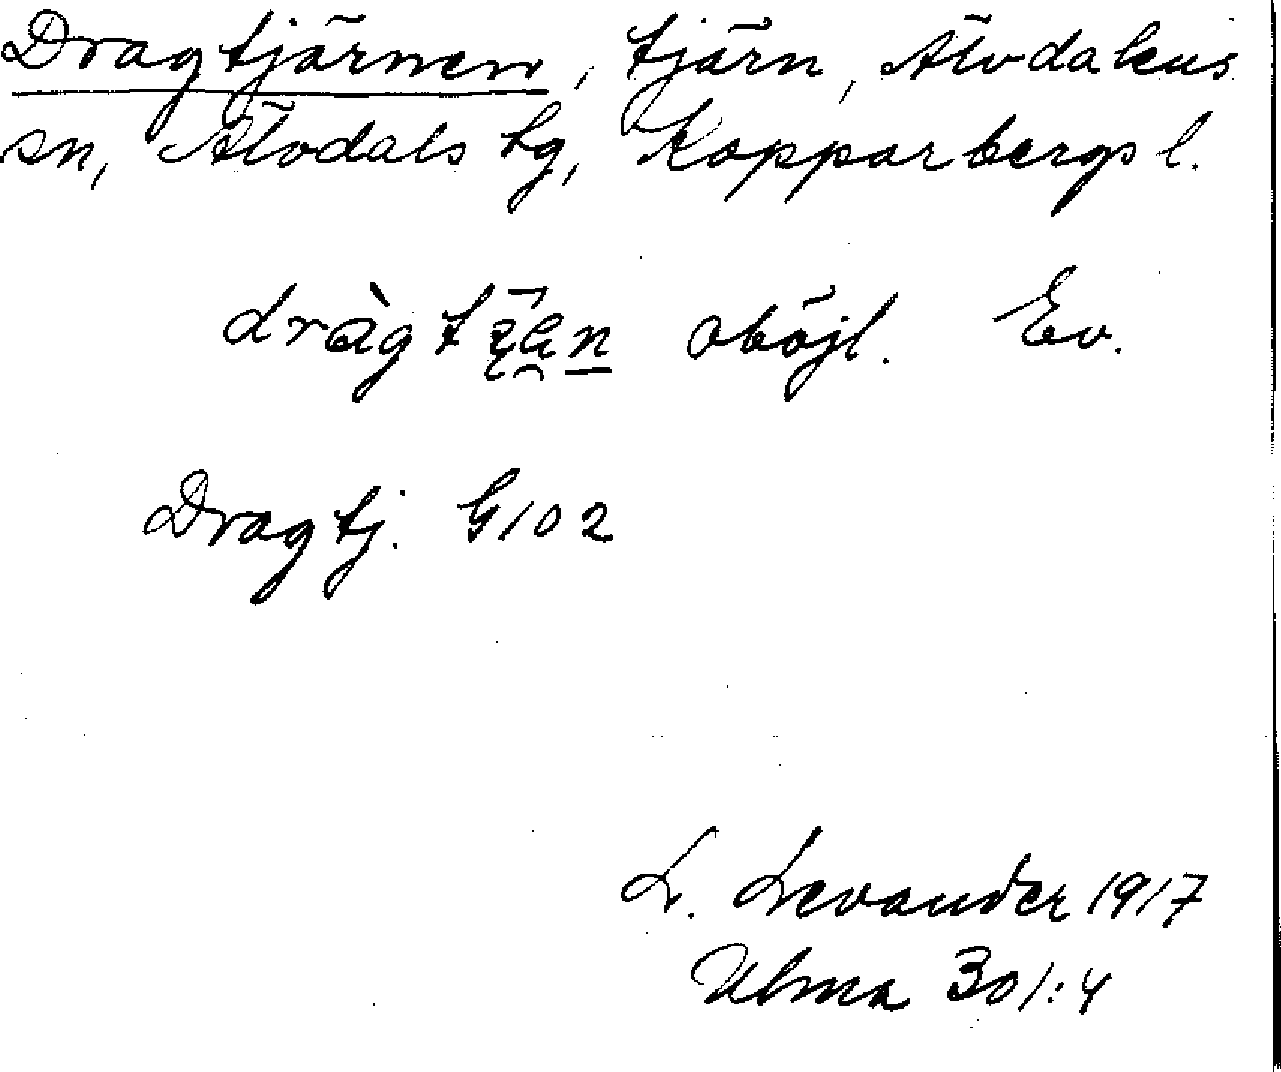 Dragtjärnen, tjärn, Älvdalens
sn, Älvdals tg, Kopparbergs l.
oböjl. Ev.
Dragtj. G102
L. Levander 1917
Ulma 301:4